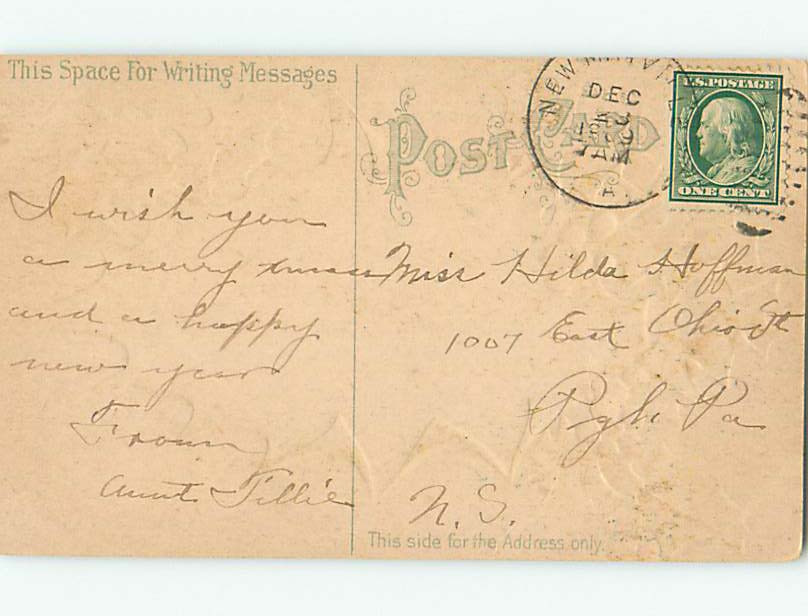 This Space For Writing Messages
POST CARD
NEW
DEC
1909
7AM
A
U.S. POSTAGE
ONE CENT
I wish you
a merry xmass
and a happy
new year
From
Aunt Tillie
Miss Hilda Hoffman
1007 East Ohio St
Pgh Pa
N. S.
This side for the Address only.